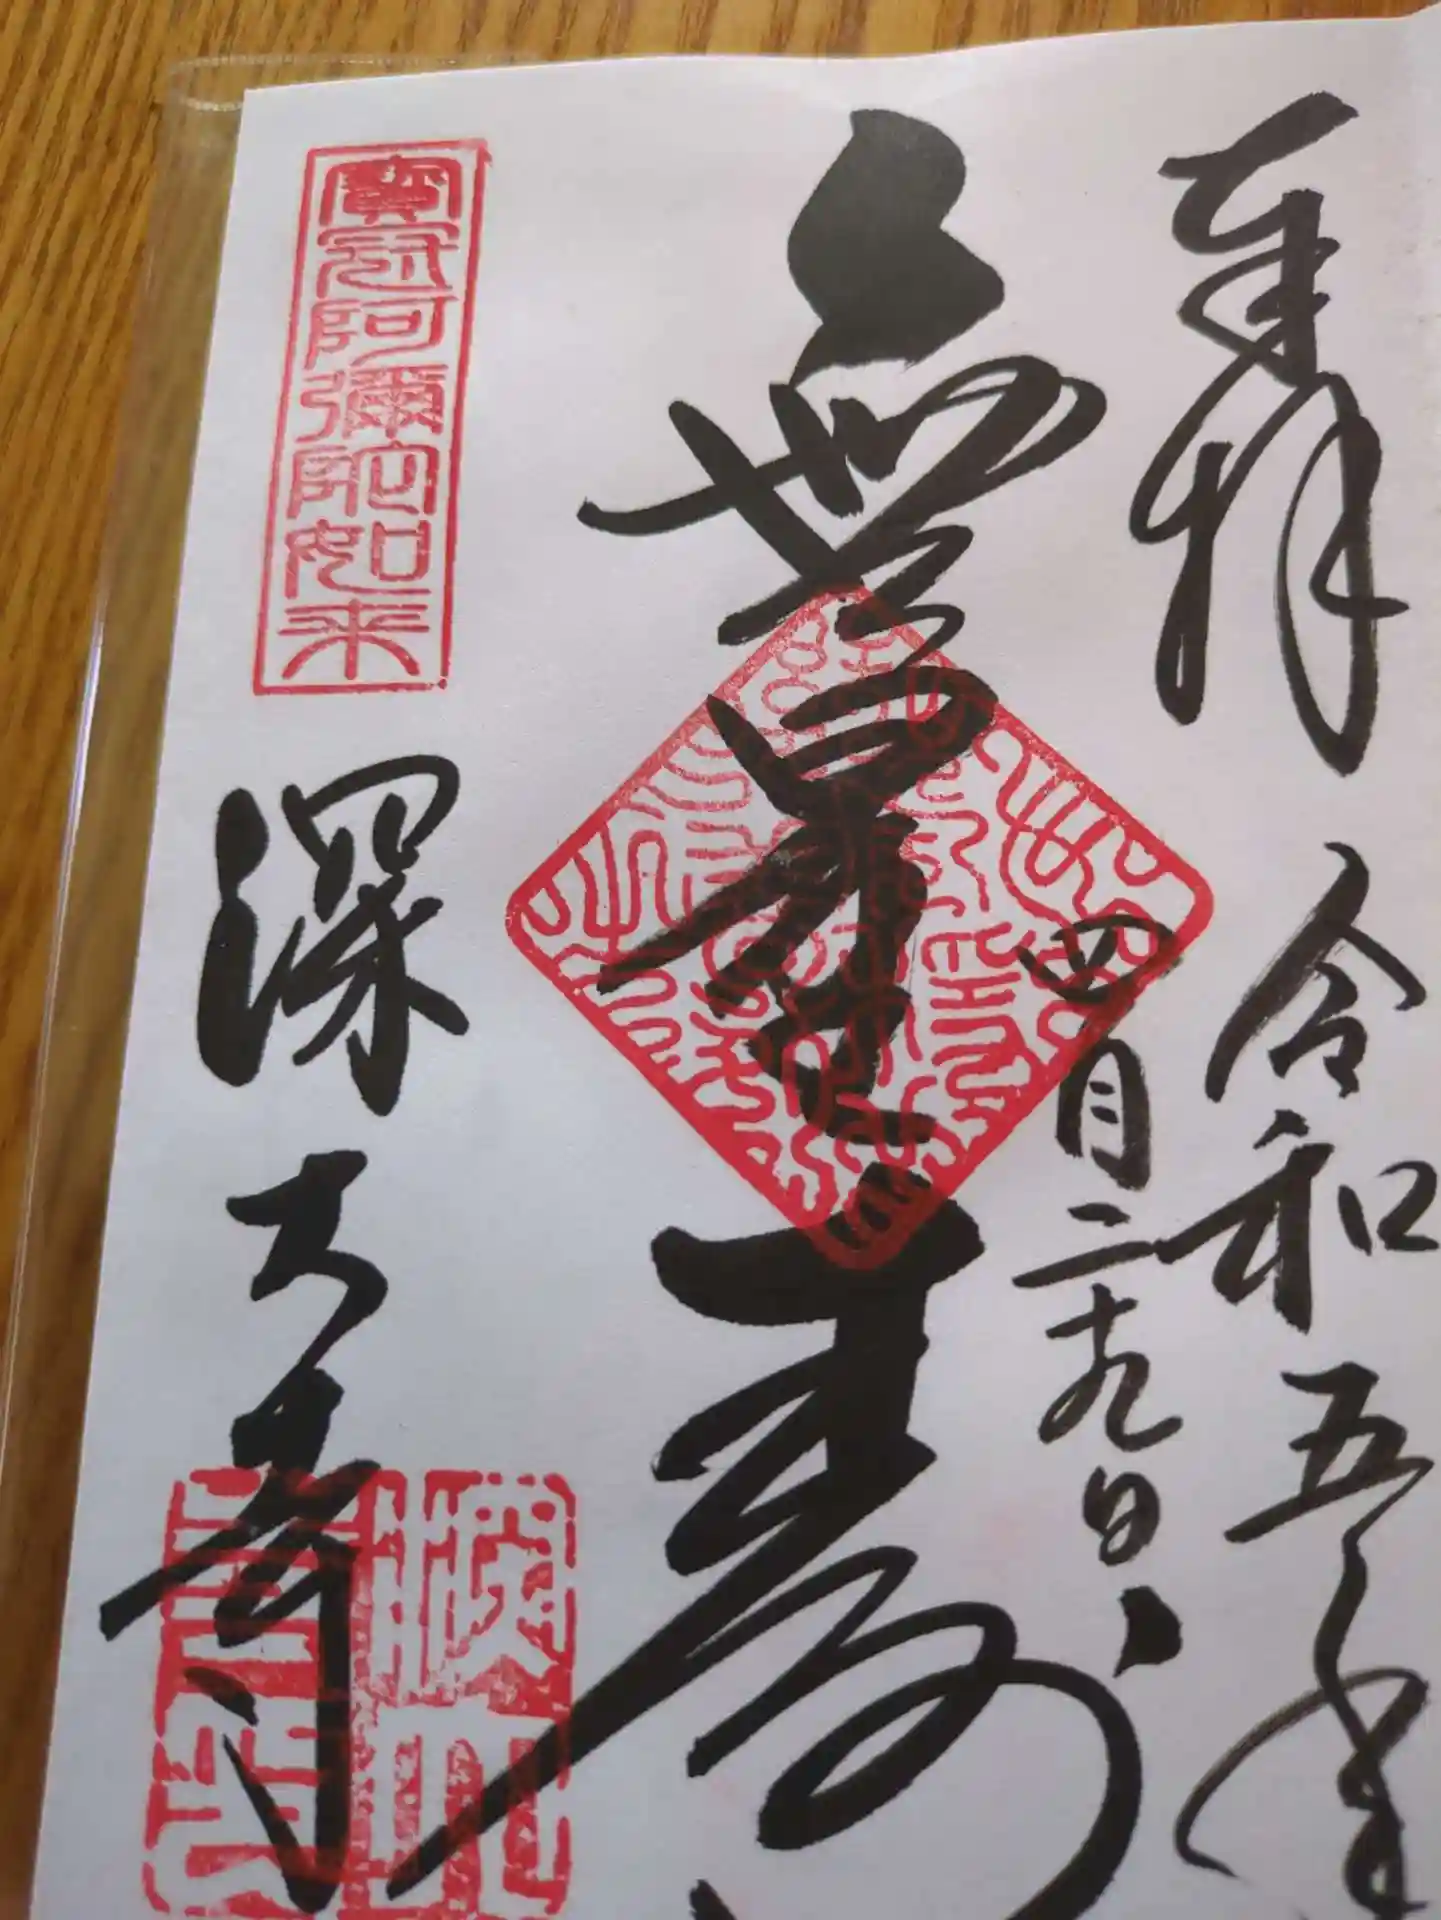 奉拝
令和五年
四月二十九日
無量寿
寳冠阿彌陀如来
深大寺